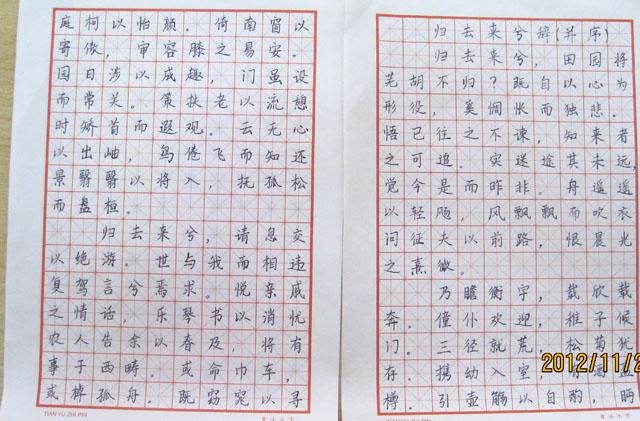 归去来兮辞(并序)
归去来兮，田园将
芜胡不归？既自以心为
形役，奚惆怅而独悲。
悟已往之不谏，知来者
之可追。实迷途其未远，
觉今是而昨非。舟遥遥
以轻飏，风飘飘而吹衣
问征夫以前路，恨晨光
之熹微。
乃瞻衡宇，载欣载
奔。僮仆欢迎，稚子候
门。三径就荒，松菊犹
存。携幼入室，有酒盈
樽。引壶觞以自酌，眄
庭柯以怡颜。倚南窗以
寄傲，审容膝之易安。
园日涉以成趣，门虽设
而常关。策扶老以流憩
时矫首而遐观。云无心
以出岫，鸟倦飞而知还
景翳翳以将入，抚孤松
而盘桓。
归去来兮，请息交
以绝游。世与我而相违
复驾言兮焉求。悦亲戚
之情话，乐琴书以消忧
农人告余以春及，将有
事于西畴。或命巾车，
或棹孤舟。既窈窕以寻
TIAN YU ZHI PIN
2012/11/2